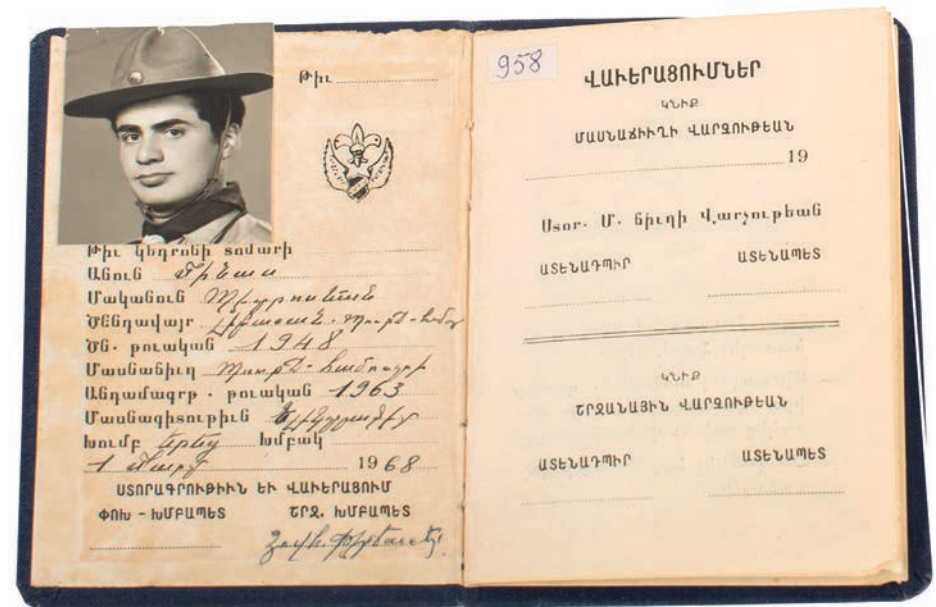 Թիւ
Թիւ կեդրոնի տոմարի
Անուն Մինաս
Մականուն
Ծննդավայր
Ծն. թուական 1948
Մասնաճիւղ
Անդամագրթ. թուական 1963
Մասնագիտութիւն
Խումբ երեց Խմբակ
1 Մարտ 1968
ՍՏՈՐԱԳՐՈՒԹԻՒՆ ԵՒ ՎԱՒԵՐԱՑՈՒՄ
ՓՈԽ - ԽՄԲԱՊԵՏ ՇՐՋ. ԽՄԲԱՊԵՏ
958
ՎԱՒԵՐԱՑՈՒՄՆԵՐ
ԿՆԻՔ
ՄԱՍՆԱՃԻՒՂԻ ՎԱՐՉՈՒԹԵԱՆ
19
Ստոր. Մ. ճիւղի Վարչութեան
ԱՏԵՆԱԴՊԻՐ ԱՏԵՆԱՊԵՏ
ԿՆԻՔ
ՇՐՋԱՆԱՅԻՆ ՎԱՐՉՈՒԹԵԱՆ
ԱՏԵՆԱԴՊԻՐ ԱՏԵՆԱՊԵՏ